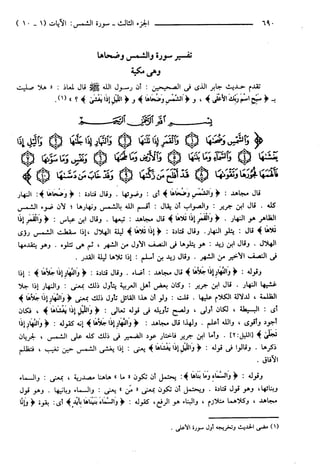 ٦٩٠ الجزء الثالث - سورة الشمس: الآيات (١ - ١٠)
تفسير سورة والشمس وضحاها
وهى مكية
تقدم حديث جابر الذى فى الصحيحين : أن رسول الله ﷺ قال لمعاذ : « هلا صليت
بـ ﴿ سبح اسم ربك الأعلى ﴾ ، و ﴿ الشمس وضحاها ﴾ و ﴿ الليل إذا يغشى ﴾ ؟ » (١) .
بسم الله الرحمن الرحيم
﴿ والشمس وضحاها ① والقمر إذا تلاها ② والنهار إذا جلاها ③ والليل إذا
يغشاها ④ والسماء وما بناها ⑤ والأرض وما طحاها ⑥ ونفس وما سواها ⑦
فألهمها فجورها وتقواها ⑧
قال مجاهد : ﴿ والشمس وضحاها ﴾ أى : وضوئها . وقال قتادة : ﴿ وضحاها ﴾ : النهار
كله . قال ابن جرير : والصواب أن يقال : أقسم الله بالشمس ونهارها ؛ لأن ضوء الشمس
الظاهر هو النهار . ﴿ والقمر إذا تلاها ﴾ قال مجاهد : تبعها . وقال ابن عباس : ﴿ والقمر إذا
تلاها ﴾ قال : يتلو النهار. وقال قتادة : ﴿ إذا تلاها ﴾ ليلة الهلال ، إذا سقطت الشمس رؤى
الهلال . وقال ابن زيد : هو يتلوها فى النصف الأول من الشهر ، ثم هى تتلوه . وهو يتقدمها
فى النصف الأخير من الشهر . وقال زيد بن أسلم : إذا تلاها ليلة القدر .
وقوله : ﴿ والنهار إذا جلاها ﴾ قال مجاهد : أضاء . وقال قتادة : ﴿ والنهار إذا جلاها ﴾ : إذا
غشيها النهار . قال ابن جرير : وكان بعض أهل العربية يتأول ذلك بمعنى : والنهار إذا جلا
الظلمة ، لدلالة الكلام عليها . قلت : ولو أن هذا القائل تأول ذلك بمعنى ﴿ والنهار إذا جلاها ﴾
أى : البسيطة ، لكان أولى ، ولصح تأويله فى قوله تعالى : ﴿ والليل إذا يغشاها ﴾ ، فكان
أجود وأقوى ، والله أعلم . ولهذا قال مجاهد : ﴿ والنهار إذا جلاها ﴾ إنه كقوله : ﴿ والنهار إذا
تجلى ﴾ [الليل:٢] . وأما ابن جرير فاختار عود الضمير فى ذلك كله على الشمس ، لجريان
ذكرها . وقالوا فى قوله : ﴿ والليل إذا يغشاها ﴾ يعنى : إذا يغشى الشمس حين تغيب ، فتظلم
الآفاق .
وقوله : ﴿ والسماء وما بناها ﴾ : يحتمل أن تكون « ما » هاهنا مصدرية ، بمعنى : والسماء
وبنائها، وهو قول قتادة . ويحتمل أن تكون بمعنى « من » يعنى : والسماء وبانيها . وهو قول
مجاهد ، وكلاهما متلازم ، والبناء هو الرفع، كقوله : ﴿ والسماء بنيناها بأيد ﴾ أى: بقوة ﴿ وإنا
(١) مضى الحديث وتخريجه أول سورة الأعلى .